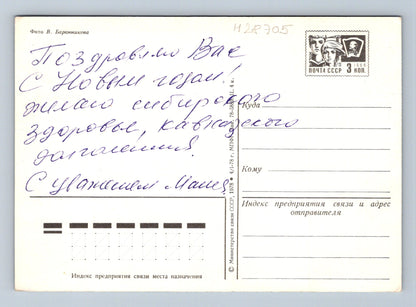 Фото В. Баранникова
H28705
Поздравляю Вас
С Новым годом,
желаю сибирского
здоровья, кавказского
долголетия!
С уважением Маша
ПОЧТА СССР 3 КОП.
Куда
Кому
Индекс предприятия связи и адрес
отправителя
Индекс предприятия связи места назначения
© Министерство связи СССР, 1978